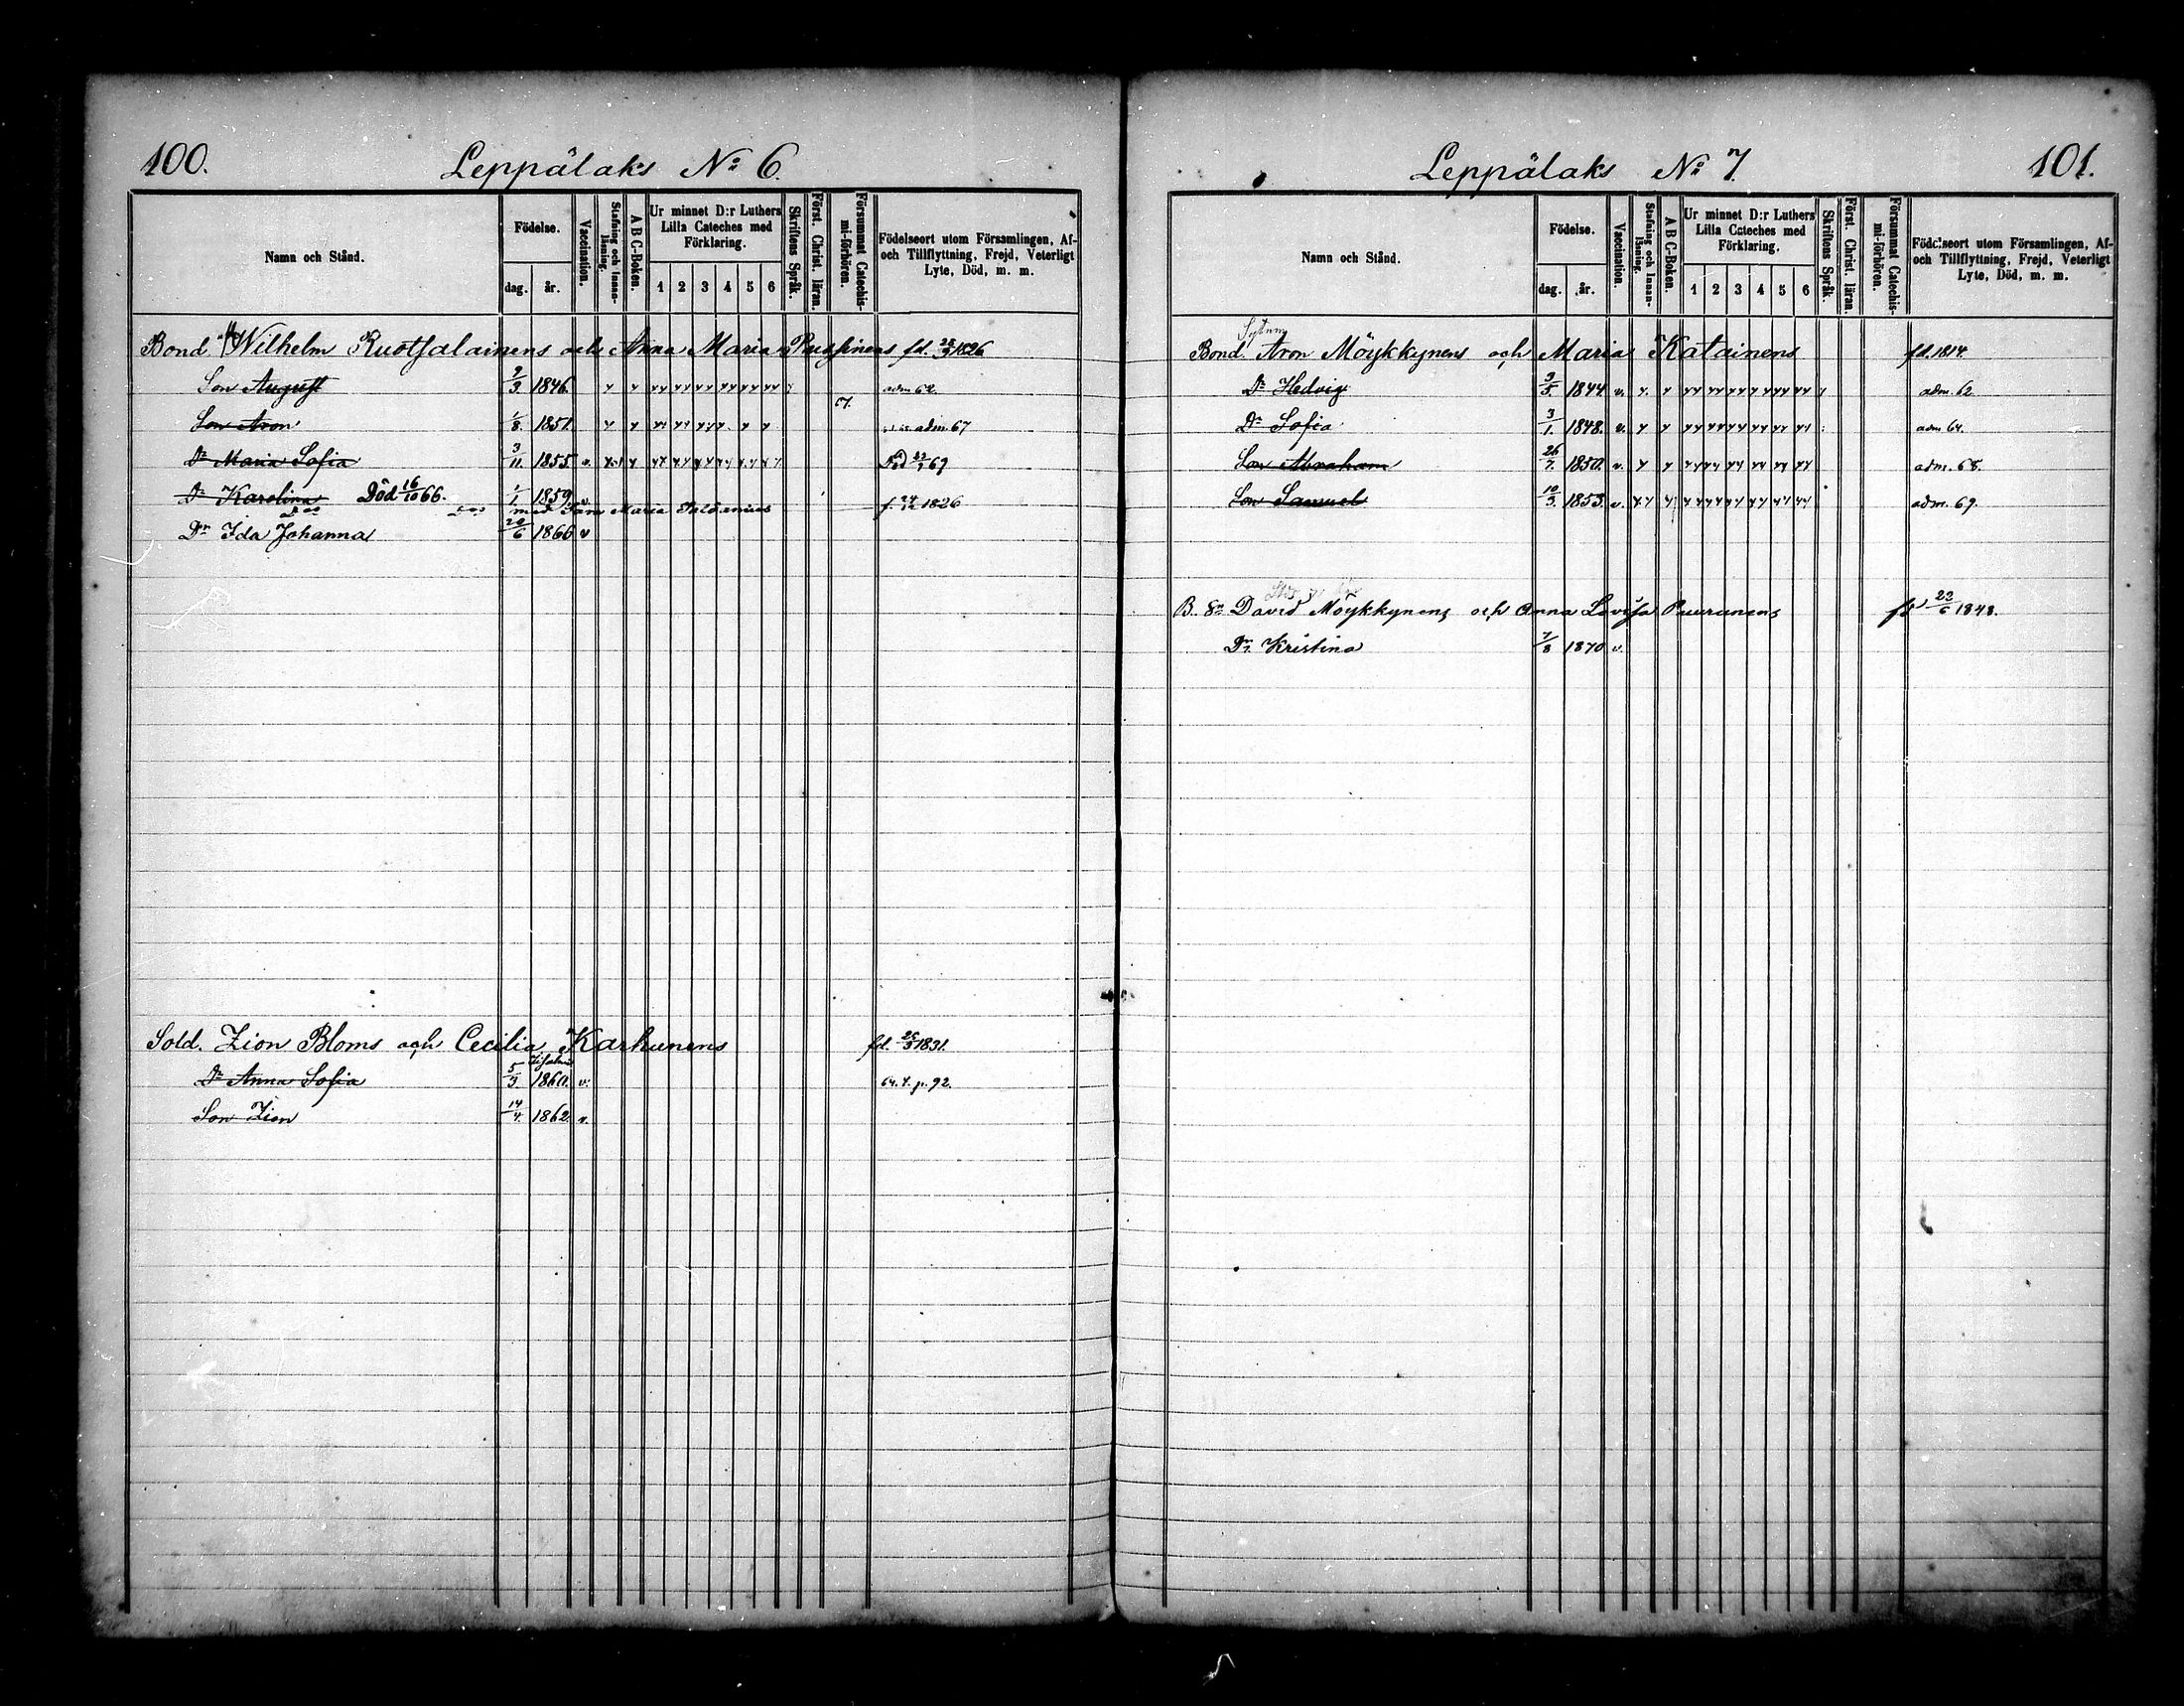 100.
Leppälaks No 6.
Namn och Stånd.
Födelse.
dag. år.
Vaccination.
Stafning och Innanläsning.
A B C-Boken.
Ur minnet D:r Luthers Lilla Cateches med Förklaring.
1 2 3 4 5 6
Skriftens Språk.
Först. Christ. läran.
Försummat Catechismi-förhören.
Födelseort utom Församlingen, Af- och Tillflyttning, Frejd, Veterligt Lyte, Död, m. m.
Bond. Wilhelm Ruotsalainens och Anna Maria fd. 1826
Son August 9/3. 1846. adm. 62.
Son Aron 1/8. 1851. adm. 67
Dr Maria Sofia 3/11. 1855. v. 69
Dr Karolina Död 16/10 66. 1/1 1859 v.
med Maria f. 1826
Dr Ida Johanna 20/6 1866 v
Sold. Zion Bloms och Cecilia Karhunens fd. 1831.
Dr Anna Sofia 5/3. 1860. v. 64. p. 92.
Son Zion 14/4. 1862. v.
Leppälaks No 7.
101.
Namn och Stånd.
Födelse.
dag. år.
Vaccination.
Stafning och Innanläsning.
A B C-Boken.
Ur minnet D:r Luthers Lilla Cateches med Förklaring.
1 2 3 4 5 6
Skriftens Språk.
Först. Christ. läran.
Försummat Catechismi-förhören.
Födelseort utom Församlingen, Af- och Tillflyttning, Frejd, Veterligt Lyte, Död, m. m.
Bond. Aron Möykkynens och Maria Katainens fd. 1814.
Dr Hedvig 3/5. 1844. v. adm. 62
Dr Sofia 3/1. 1848. v. adm. 64.
Son Abraham 26/7. 1850. v. adm. 68.
Son Samuel 10/3. 1853. v. adm. 69.
B. Sn David Möykkynens och Anna Lovisa Puurunens fd 22/6 1848.
Dr. Kristina 7/8 1870 v.